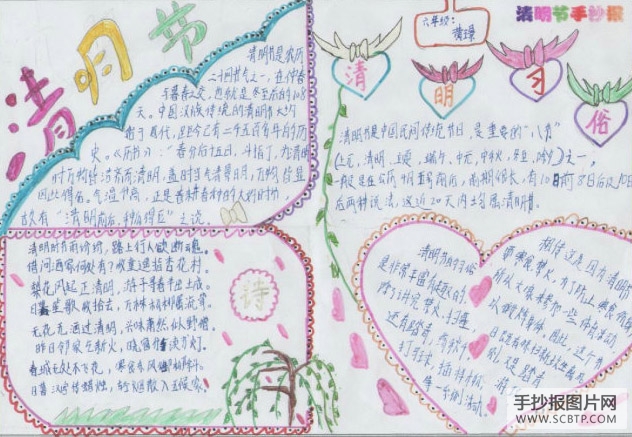 清明节
清明节是农历
二十四节气之一，在仲春
与暮春之交，也就是冬至后的108
天。中国汉族传统的清明节大约
始于周代，距今已有二千五百多年的历
史。《历书》：“春分后十五日，斗指丁，为清明，
时万物皆洁齐而清明，盖时当气清景明，万物皆显，
因此得名。”气温升高，正是春耕春种的大好时节
故有“清明前后，种瓜得豆”之说。
六年级：
清明节手抄报
清明习俗
清明节是中国民间传统节日，是重要的“八节”
(上元，清明，立夏，端午，中元，中秋，冬至，除夕)之一，
一般是在公历4月5号前后，节期很长，有10日前8日后及10日
后两种说法，这近20天内均属清明节。
清明时节雨纷纷，路上行人欲断魂。
借问酒家何处有？牧童遥指杏花村。
梨花风起正清明，游子寻春半出城。
日暮笙歌收拾去，万株杨柳属流莺。
无花无酒过清明，兴味萧然似野僧。
昨日邻家乞新火，晓窗分与读书灯。
春城无处不飞花，寒食东风御柳斜。
日暮汉宫传蜡烛，轻烟散入五侯家。
诗
清明节的习俗
是非常丰富有趣的，
除了讲究禁火、扫墓，
还有踏青、荡秋千、
打马球、插柳
等一系列活动。
相传这是因为清明节
要寒食禁火，为了防止寒食冷餐
所以大家来参加一些体育活动，
以锻炼身体。因此，这个节
手抄报图片网
WWW.SCBTP.COM